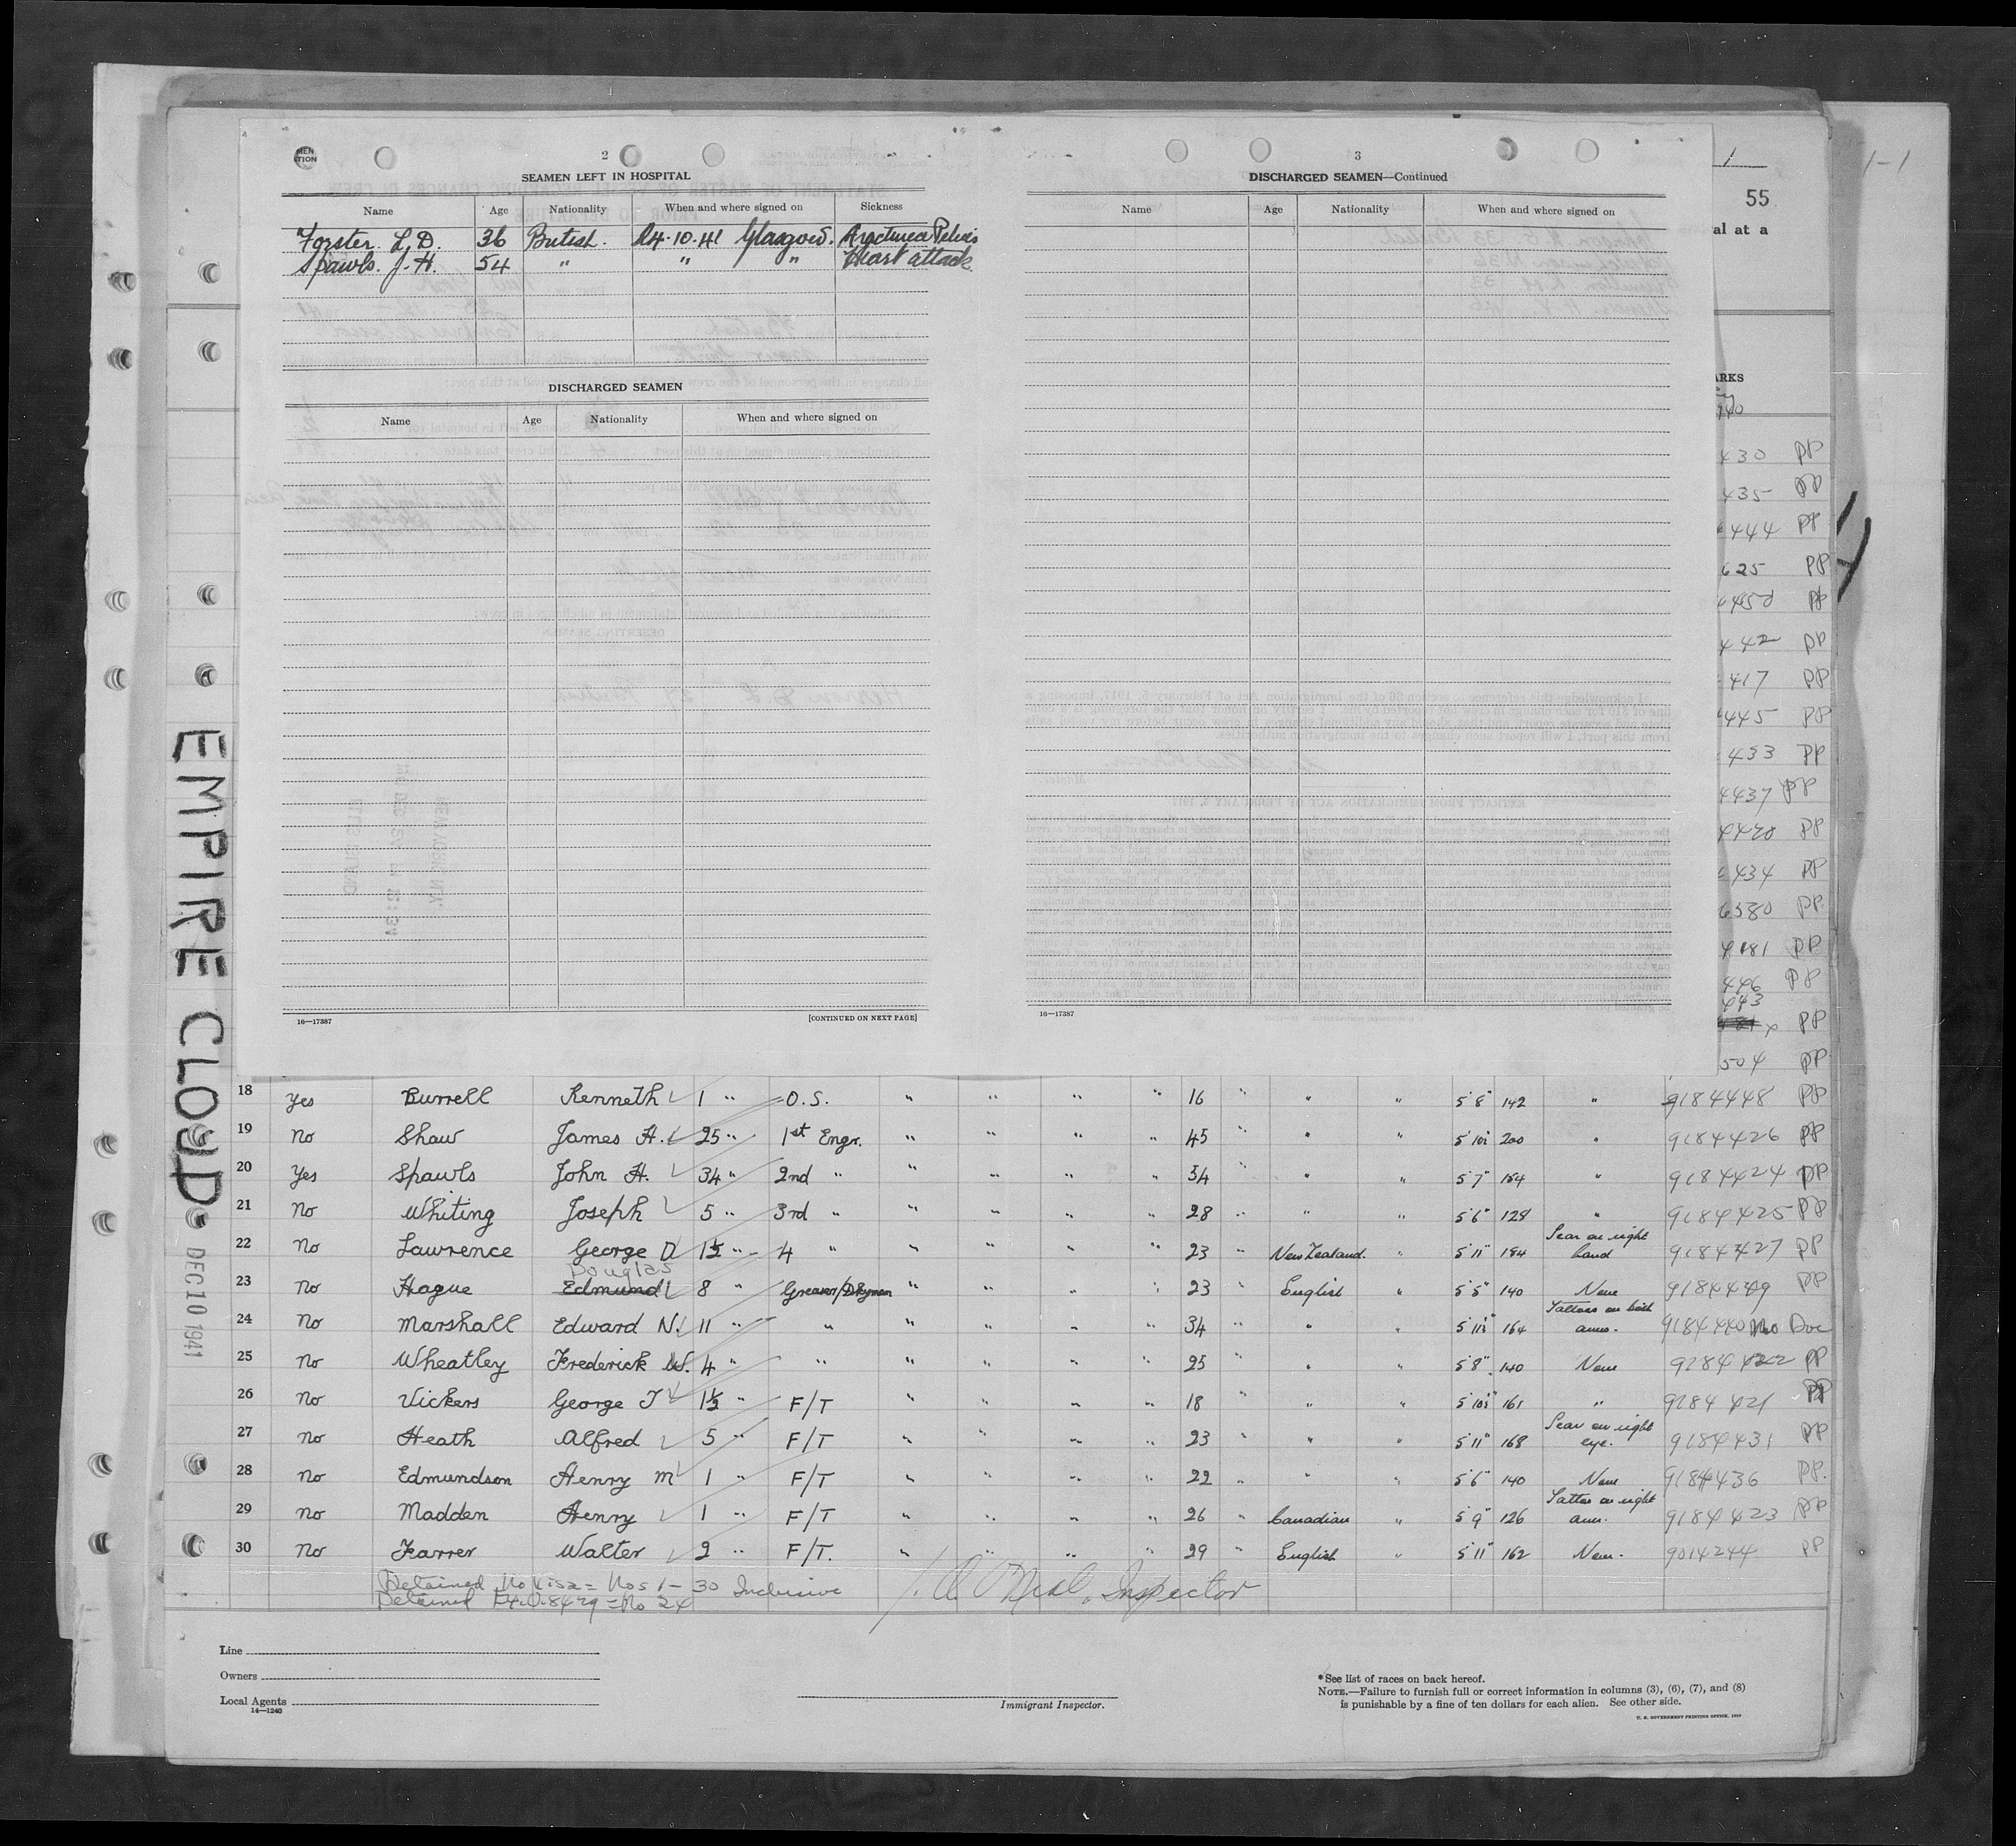 2
SEAMEN LEFT IN HOSPITAL
Name Age Nationality When and where signed on Sickness
Forster. L.D. 36 British. 24.10.41 Glasgow. Fractured Pelvis
Spawls. J.H. 54 " " " Heart attack
DISCHARGED SEAMEN
Name Age Nationality When and where signed on
16—17387 [CONTINUED ON NEXT PAGE]
3
DISCHARGED SEAMEN—Continued
Name Age Nationality When and where signed on
16—17387
1
1-1
55
al at a
ARKS
940
430 PP
435 PP
444 PP
625 PP
450 PP
442 PP
417 PP
445 PP
433 PP
4437 PP
4420 PP
434 PP
6380 PP
4181 PP
446 PP
443
PP
504 PP
EMPIRE CLOUD
DEC 10 1941
18 Yes Burrell Kenneth 1 " O.S. " " " " 16 " " " 5'8" 142 " 9184448 PP
19 No Shaw James H. 25 " 1st Engr. " " " " 45 " " " 5'10½ 200 " 9184426 PP
20 Yes Spawls John H. 34 " 2nd " " " " " 54 " " " 5'7" 164 " 9184424 PP
21 No Whiting Joseph 5 " 3rd " " " " " 28 " " " 5'6" 128 " 9184425 PP
22 No Lawrence George D 1½ " 4 " " " " " 23 " New Zealand. " 5'11" 184 Scar on right hand 9184427 PP
Douglas
23 No Hague Edmund 8 " Greaser/Dkyman " " " " 23 " English " 5'5" 140 None 9184449 PP
24 No Marshall Edward N. 11 " " " " " " 34 " " " 5'11½" 164 Tattoos on both arms. 9184440 No Doc
25 No Wheatley Frederick W. 4 " " " " " " 25 " " " 5'8" 140 None 9284422 PP
26 No Vickers George T 1½ " F/T " " " " 18 " " " 5'10½" 161 " 9284421 PP
27 No Heath Alfred 5 " F/T " " " " 23 " " " 5'11" 168 Scar on right eye. 9184431 PP
28 No Edmundson Henry M 1 " F/T " " " " 22 " " " 5'6" 140 None 9184436 PP.
29 No Madden Henry 1 " F/T " " " " 26 " Canadian " 5'9" 126 Tattoo on right arm. 9184423 PP
30 No Farrer Walter 2 " F/T. " " " " 29 " English " 5'11" 162 None. 9014244 PP
Detained No Visa = Nos 1-30 Inclusive
Detained = No 24
O'Neal, Inspector
Line
Owners
Local Agents
14—1240
Immigrant Inspector.
*See list of races on back hereof.
NOTE.—Failure to furnish full or correct information in columns (3), (6), (7), and (8)
is punishable by a fine of ten dollars for each alien. See other side.
U. S. GOVERNMENT PRINTING OFFICE